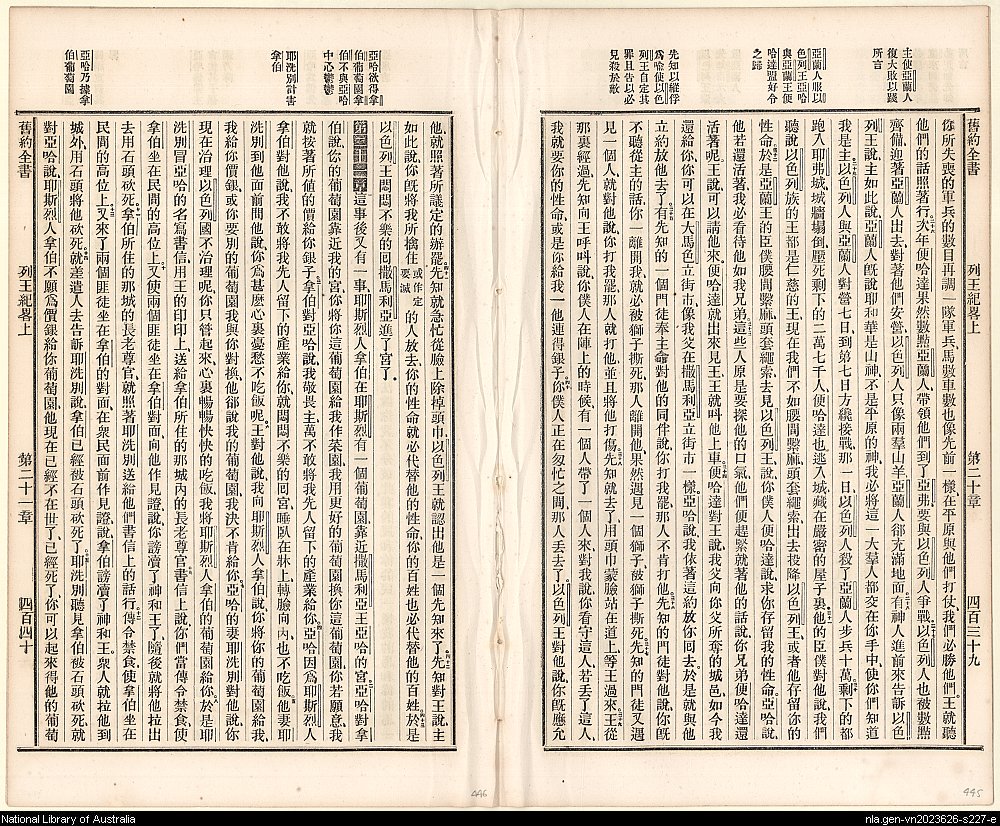 主使亞蘭人
復大敗以踐
所言
亞蘭人服以
色列王亞哈
與亞蘭王便
哈達盟好令
之歸
先知以縱俘
爲喩使以色
列王自定其
罪且告以必
見殺於敵
舊約全書
列王紀畧上
第二十章
四百三十九
你所失喪的軍兵的數目再調一隊軍兵、馬數車數也像先前一樣在平原與他們打仗、我們必勝他們。王就聽
他們的話照著行。次年便哈達果然數點亞蘭人帶領他們到了亞弗、要與以色列人爭戰。以色列人也被數點
齊備迎著亞蘭人出去、對著他們安營、以色列人只像兩羣山羊、亞蘭人卻充滿地面。有神人進前來告訴以色
列王說、主如此說、亞蘭人旣說耶和華是山神不是平原的神、我必將這一大羣人都交在你手中、使你們知道
我是主。以色列人與亞蘭人對營七日、到第七日方纔接戰、那一日以色列人殺了亞蘭人步兵十萬。剩下的都
跑入亞弗城、城牆塌倒、壓死剩下的二萬七千人、便哈達也逃入城藏在嚴密的屋子裏。他的臣僕對他說、我們
聽說以色列族的王都是仁慈的王、現在我們不如腰間繫麻、頭套繩索、出去投降以色列王、或者他存留你的
性命。於是亞蘭王的臣僕腰間繫麻、頭套繩索、去見以色列王、說、你僕人便哈達說、求你存留我的性命。亞哈說、
他若還活著、我必看待他如我兄弟。這些人原是要探他的口氣、他們便趕緊就著他的話說、你兄弟便哈達還
活著呢。王說、可以請他來、便哈達就出來見王、王就呌他上車。便哈達對王說、我父向你父所奪的城邑、如今我
還給你、你可以在大馬色立街市、像我父在撒馬利亞立街市一樣、亞哈說、我依著這約放你回去、於是就與他
立約放他去了。有先知的一個門徒奉主命對他的同伴說、你打我罷、那人不肯打他。先知的門徒對他說、你旣
不聽從主的話、你一離開我就必被獅子撕死、那人離開他、果然遇見一個獅子、被獅子撕死。先知的門徒又遇
見一個人、就對他說、你打我罷、那人就打他、並且將他打傷。先知就去了、用頭巾蒙臉、站在道上等王過來。王從
那裏經過、先知向王呼呌說、你僕人在陣上的時候、有一個人帶了一個人來對我說、你看守這人、若丟了這人、
我就要你的性命、或是你給我一他連得銀子。你僕人正在忽忙之間、那人丟去了。以色列王對他說、你旣應允
亞哈欲得拿
伯葡萄園拿
伯不與亞哈
中心鬱鬱
耶洗別計害
拿伯
亞哈乃據拿
伯葡萄園
他、就照著所議定的辦罷。先知就急忙從臉上除掉頭巾、以色列王就認出他是一個先知來了。先知對王說、主
如此說、你旣將我所擒住或作定要滅的人放去、你的性命就必代替他的性命、你的百姓也必代替他的百姓。於是
以色列王悶悶不樂的回撒馬利亞、進了宮了。
第二十一章這事後又有一事、耶斯烈人拿伯在耶斯烈有一個葡萄園、靠近撒馬利亞王亞哈的宮。亞哈對拿
伯說、你的葡萄園靠近我的宮、你將你這葡萄園給我作菜園、我用更好的葡萄園換你這葡萄園、你若願意、我
就按著所値的價給你銀子。拿伯對亞哈說、我敬畏主、萬不敢將我先人留下的產業給你。亞哈因爲耶斯烈人
拿伯對他說、我不敢將我先人留下的產業給你、就悶悶不樂的回宮、睡臥在牀上、轉臉向內、也不吃飯。他妻耶
洗別到他面前問他說、你爲甚麽心裏憂愁不吃飯呢。王對他說、我向耶斯烈人拿伯說、你將你的葡萄園給我、
我給你價銀、或你要別的葡萄園我與你對換、他卻說我的葡萄園我決不肯給你。亞哈的妻耶洗別對他說、你
現在治理以色列國不治理呢、你只管起來、心裏暢暢快快的吃飯、我將耶斯烈人拿伯的葡萄園給你。於是耶
洗別冒亞哈的名寫書信、用王的印印上、送給拿伯所住的那城內的長老尊官。書信上說、你們當傳令禁食、使
拿伯坐在民間的高位上。又使兩個匪徒坐在拿伯對面、向他作見證、說、你謗瀆了神和王了、隨後就將他拉出
去用石頭砍死。拿伯所住的那城的長老尊官、就照著耶洗別送給他們書信上的話行。傳令禁食、使拿伯坐在
民間的高位上。又來了兩個匪徒坐在拿伯的對面、在衆民面前作見證、說、拿伯謗瀆了神和王、衆人就拉他到
城外、用石頭將他砍死。就差遣人去告訴耶洗別說、拿伯已經被石頭砍死了。耶洗別聽見拿伯被石頭砍死、就
對亞哈說、耶斯烈人拿伯不願爲價銀給你葡萄園、他現在已經不在世了、已經死了、你可以起來得他的葡萄
舊約全書
列王紀畧上
第二十一章
四百四十
446
445
National Library of Australia
nla.gen-vn2023626-s227-e